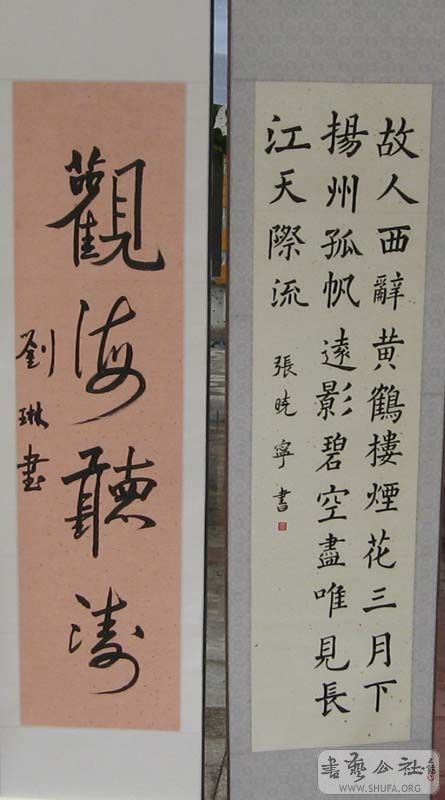 故人西辭黄鶴樓煙花三月下
揚州孤帆遠影碧空盡唯見長
江天際流
張曉寧書
觀海聽濤
劉琳書
書藝公社
WWW.SHUFA.ORG